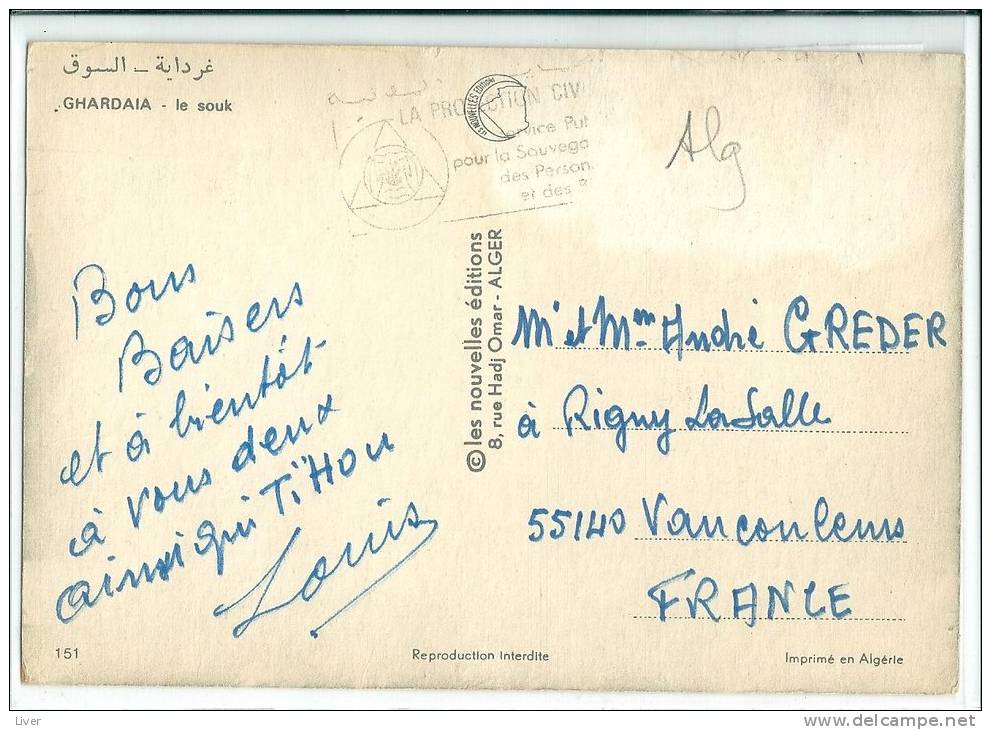 غرداية - السوق
GHARDAIA - le souk
LA PROTECTION CIV
Service Pub
pour la Sauvega
des Person
et des
Alg
Bons
Baisers
et à bientôt
à vous deux
ainsi qui Ti'Hou
Louis
© les nouvelles éditions
8, rue Hadj Omar - ALGER
Mr et Mme André GREDER
à Rigny LaSalle
55140 Vaucouleurs
FRANCE
151
Reproduction Interdite
Imprimé en Algérie
Liver
www.delcampe.net